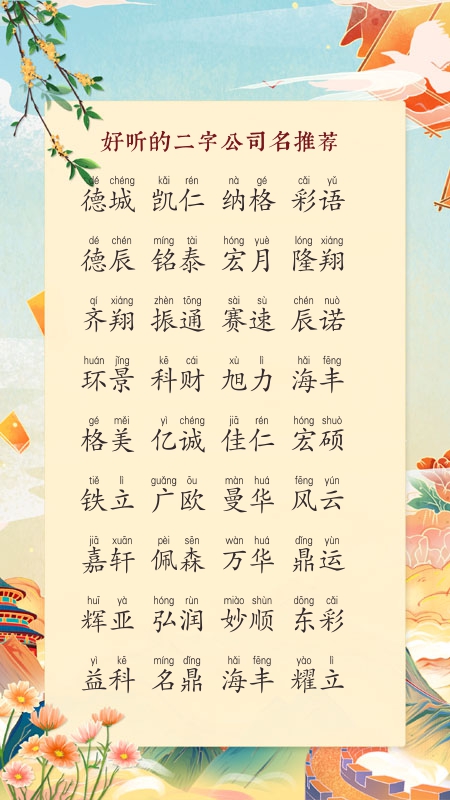 好听的二字公司名推荐
dé chéng kǎi rén nà gé cǎi yǔ
德城 凯仁 纳格 彩语
dé chén míng tài hóng yuè lóng xiáng
德辰 铭泰 宏月 隆翔
qí xiáng zhèn tōng sài sù chén nuò
齐翔 振通 赛速 辰诺
huán jǐng kē cái xù lì hǎi fēng
环景 科财 旭力 海丰
gé měi yì chéng jiā rén hóng shuò
格美 亿诚 佳仁 宏硕
tiě lì guǎng ōu màn huá fēng yún
铁立 广欧 曼华 风云
jiā xuān pèi sēn wàn huá dǐng yùn
嘉轩 佩森 万华 鼎运
huī yà hóng rùn miào shùn dōng cǎi
辉亚 弘润 妙顺 东彩
yì kē míng dǐng hǎi fēng yào lì
益科 名鼎 海丰 耀立